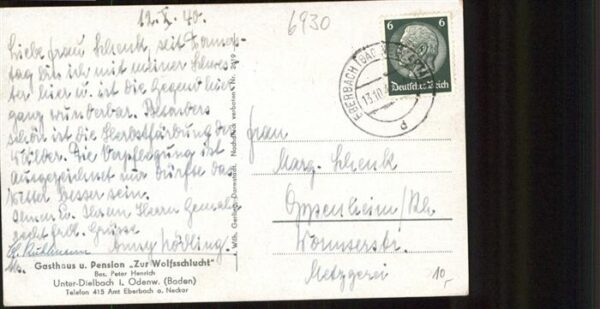 12. X. 40.
6930
Liebe Frau Schenk, seit Donners-
tag bin ich mit meiner Schwes-
ter hier u. ist die Gegend hier
ganz wunderbar. Besonders
schön ist die Herbstfärbung der
Wälder. Die Verpflegung ist
ausgezeichnet nur dürfte das
Wetter besser sein.
Ihnen u. Ihrem Herrn Gemahl
recht frdl. Grüsse
Anny
Gasthaus u. Pension „Zur Wolfsschlucht"
Bes. Peter Henrich
Unter-Dielbach i. Odenw. (Baden)
Telefon 415 Amt Eberbach a. Neckar
Gerling-Darmstadt. Nachdruck verboten. Nr.
6 6
Deutsches Reich
EBERBACH (BADEN)
13.10.
d
Frau
Marg. Schenk
Oppenheim/Rh.
Wormserstr.
Metzgerei
10,-